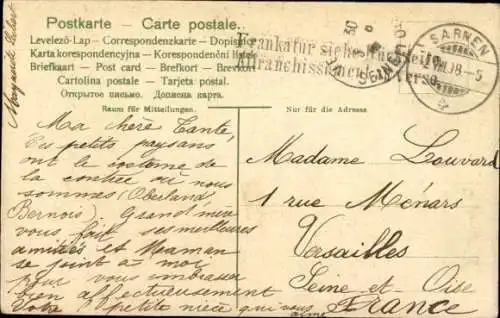 Postkarte - Carte postale.
Levelező-Lap - Correspondenzkarte - Dopisnice
Karta korespondencyjna - Korespondenční lístek
Briefkaart - Post card - Brefkort - Brevkort
Cartolina postale - Tarjeta postal.
Открытое письмо. Дописна карта.
Frankatur siehe Rückseite
Affranchissance au verso
SARNEN
Raum für Mitteilungen.
Nur für die Adresse
Ma chère Tante,
Les petits paysans
ont le costume de
la contrée où nous
sommes (Oberland
Bernois). Grand'mère
vous fait ses meilleures
amitiés et Maman
se joint à moi
pour vous embrasser
bien affectueusement
Votre petite nièce qui vous
aime
Madame Louvard
1 rue Ménars
Versailles
Seine et Oise
France